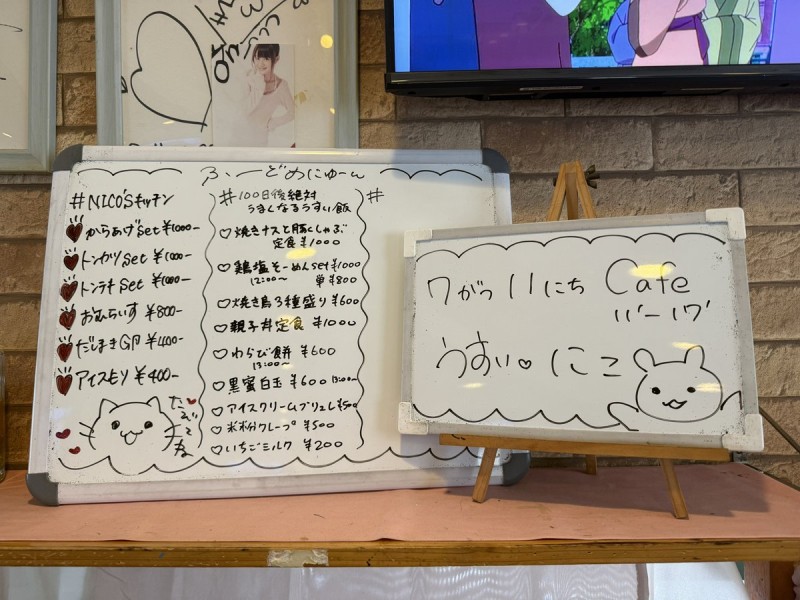 ふーどめにゅーん
#NICO'Sキッチン
からあげset ¥1000-
トンカツset ¥1000-
トンテキset ¥1000-
おむらいす ¥800-
だしまき ¥400-
アイスモリ ¥400-
たべてね
#100日後絶対
うまくなるうすい飯
♡焼きナスと豚しゃぶ
定食 ¥1000
♡鶏塩そーめんset ¥1000
12:00〜 単¥800
♡焼き鳥3種盛り ¥600
♡親子丼定食 ¥1000
♡わらび餅 ¥600
13:00〜
♡黒蜜白玉 ¥600 13:00〜
♡アイスクリームブリュレ ¥500
♡米粉クレープ ¥500
♡いちごミルク ¥200
#
7がつ11にち Cafe
うすい♡にこ